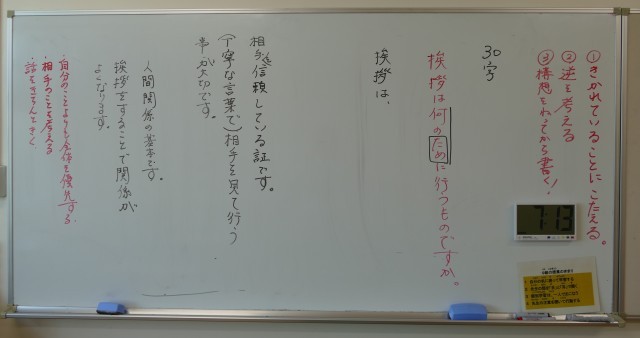 ①きかれていることにこたえる。
②逆を考える
③構想をねってから書く!
30字
挨拶は何のために行うものですか。
挨拶は、
相手を信頼している証です。
(丁寧な言葉で)相手を見て行う
事が大切です。
人間関係の基本です。
挨拶をすることで関係が
よくなります。
・自分のことよりも全体を優先する
・相手のことを考える
・話をきちんときく
7:13